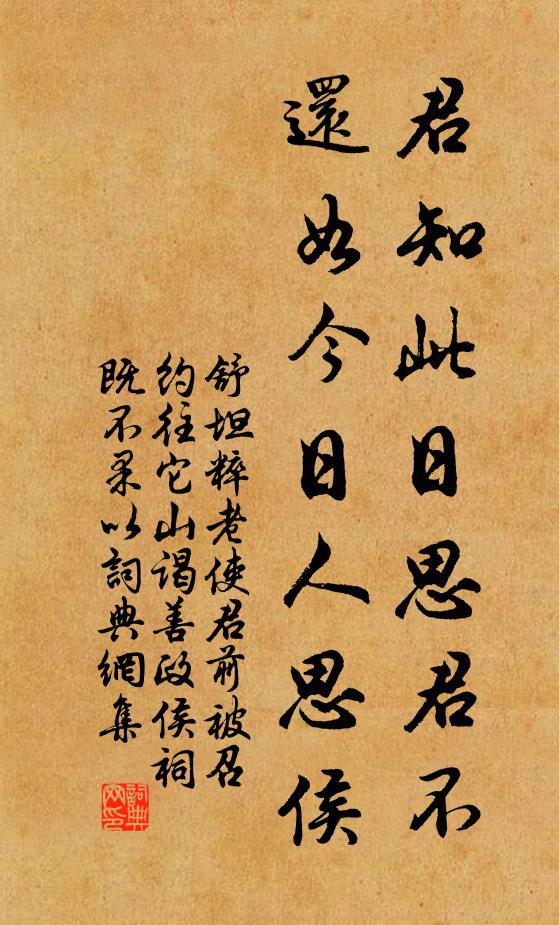 君知此日思君不
還如今日人思侯
舒坦粹老使君前被召
約往它山謁善政侯祠
既不果以詞典網集
詞典
网印